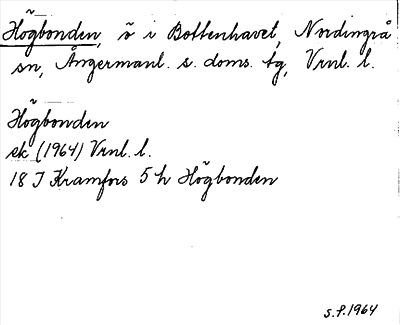 Högbonden, ö i Bottenhavet, Nordingrå
sn, Ångermanl. s. doms. tg, Vrnl. l.
Högbonden
ek (1964) Vrnl. l.
18 J Kramfors 5 h Högbonden
s.f. 1964